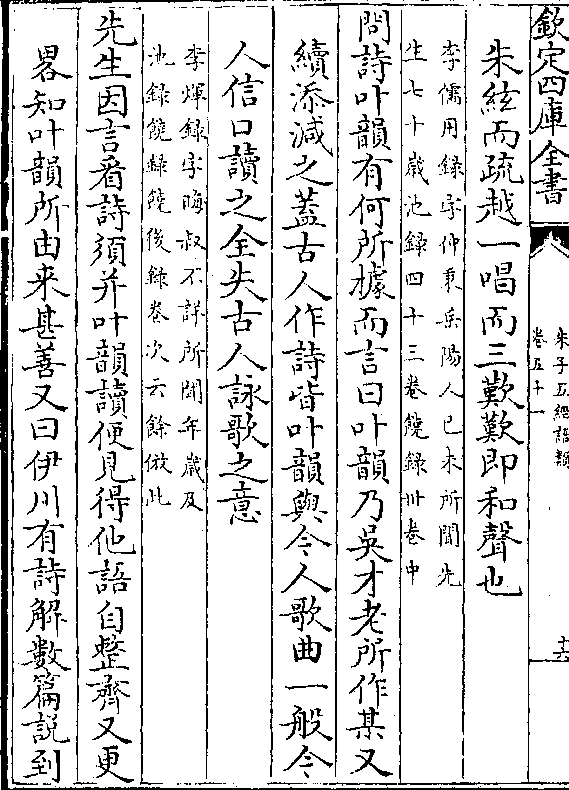 欽定四庫全書
朱子五經語類
卷五十一
十六
朱絃而疏越一唱而三歎歎即和聲也
李儒用錄字仲秉岳陽人已未所聞先
生七十歲池錄四十三卷饒錄卅卷中
問詩叶韻有何所據而言曰叶韻乃吳才老所作某又
續添減之蓋古人作詩皆叶韻與今人歌曲一般今
人信口讀之全失古人詠歌之意
李煇錄字晦叔不詳所聞年歲及
池錄饒錄饒後錄卷次云餘倣此
先生因言看詩須并叶韻讀便見得他語自整齊又更
畧知叶韻所由来甚善又曰伊川有詩解數篇説到